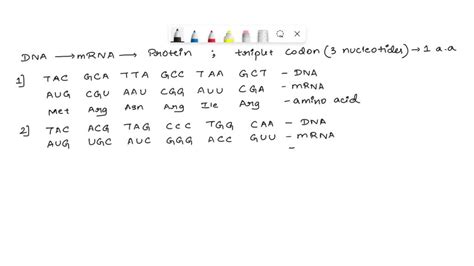 DNA → mRNA → Protein ; triplet codon (3 nucleotides) → 1 a.a
1] TAC GCA TTA GCC TAA GCT – DNA
AUG CGU AAU CGG AUU CGA – mRNA
Met Arg Asn Arg Ile Arg – amino acid
2] TAC ACG TAG CCC TGG CAA – DNA
AUG UGC AUC GGG ACC GUU – mRNA
–